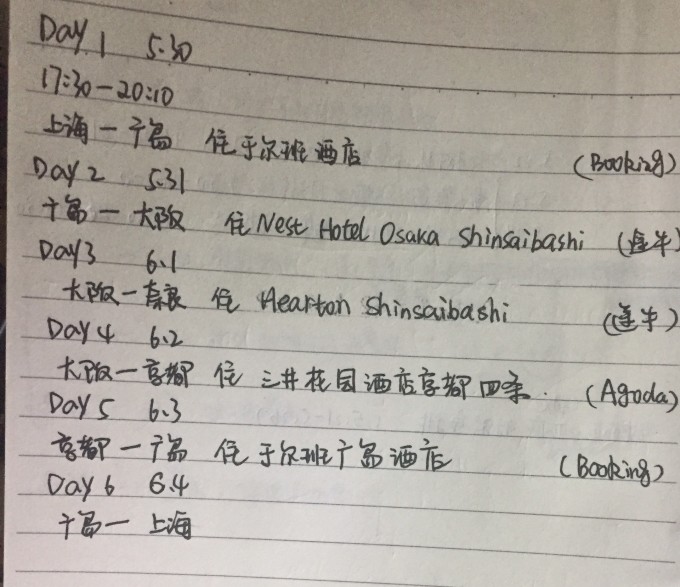 Day 1 5.30
17:30-20:10
上海一广岛 住于尔班酒店 (Booking)
Day 2 5.31
广岛一大阪 住 Nest Hotel Osaka Shinsaibashi (途牛)
Day 3 6.1
大阪一奈良 住 Hearton Shinsaibashi (途牛)
Day 4 6.2
大阪一京都 住 三井花园酒店京都四条. (Agoda)
Day 5 6.3
京都一广岛 住于尔班广岛酒店 (Booking)
Day 6 6.4
广岛一上海